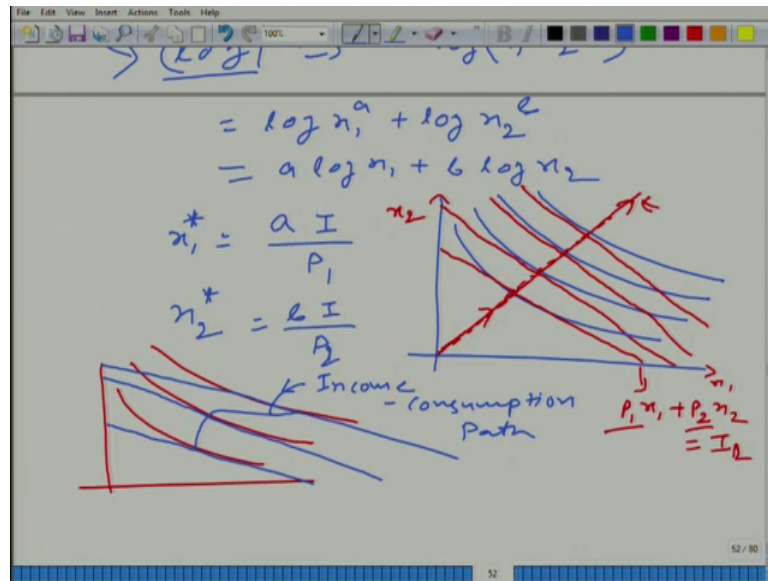 File Edit View Insert Actions Tools Help
100%
= log x₁ᵃ + log x₂ᵇ
= a log x₁ + b log x₂
x₁* = a I / P₁
x₂* = b I / P₂
x₂
x₁
P₁x₁ + P₂x₂
Income
- consumption
Path
52 / 80
52